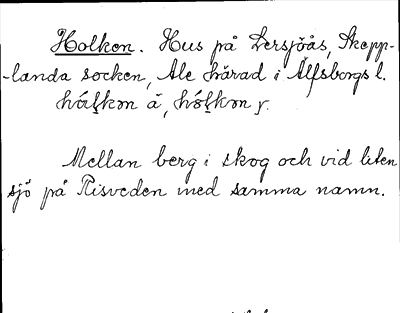 Holken. Hus på Lersjöås, Skepp-
-landa socken, Ale härad i Älfsborgs l.
Mellan berg i skog och vid liten
sjö på Risveden med samma namn.